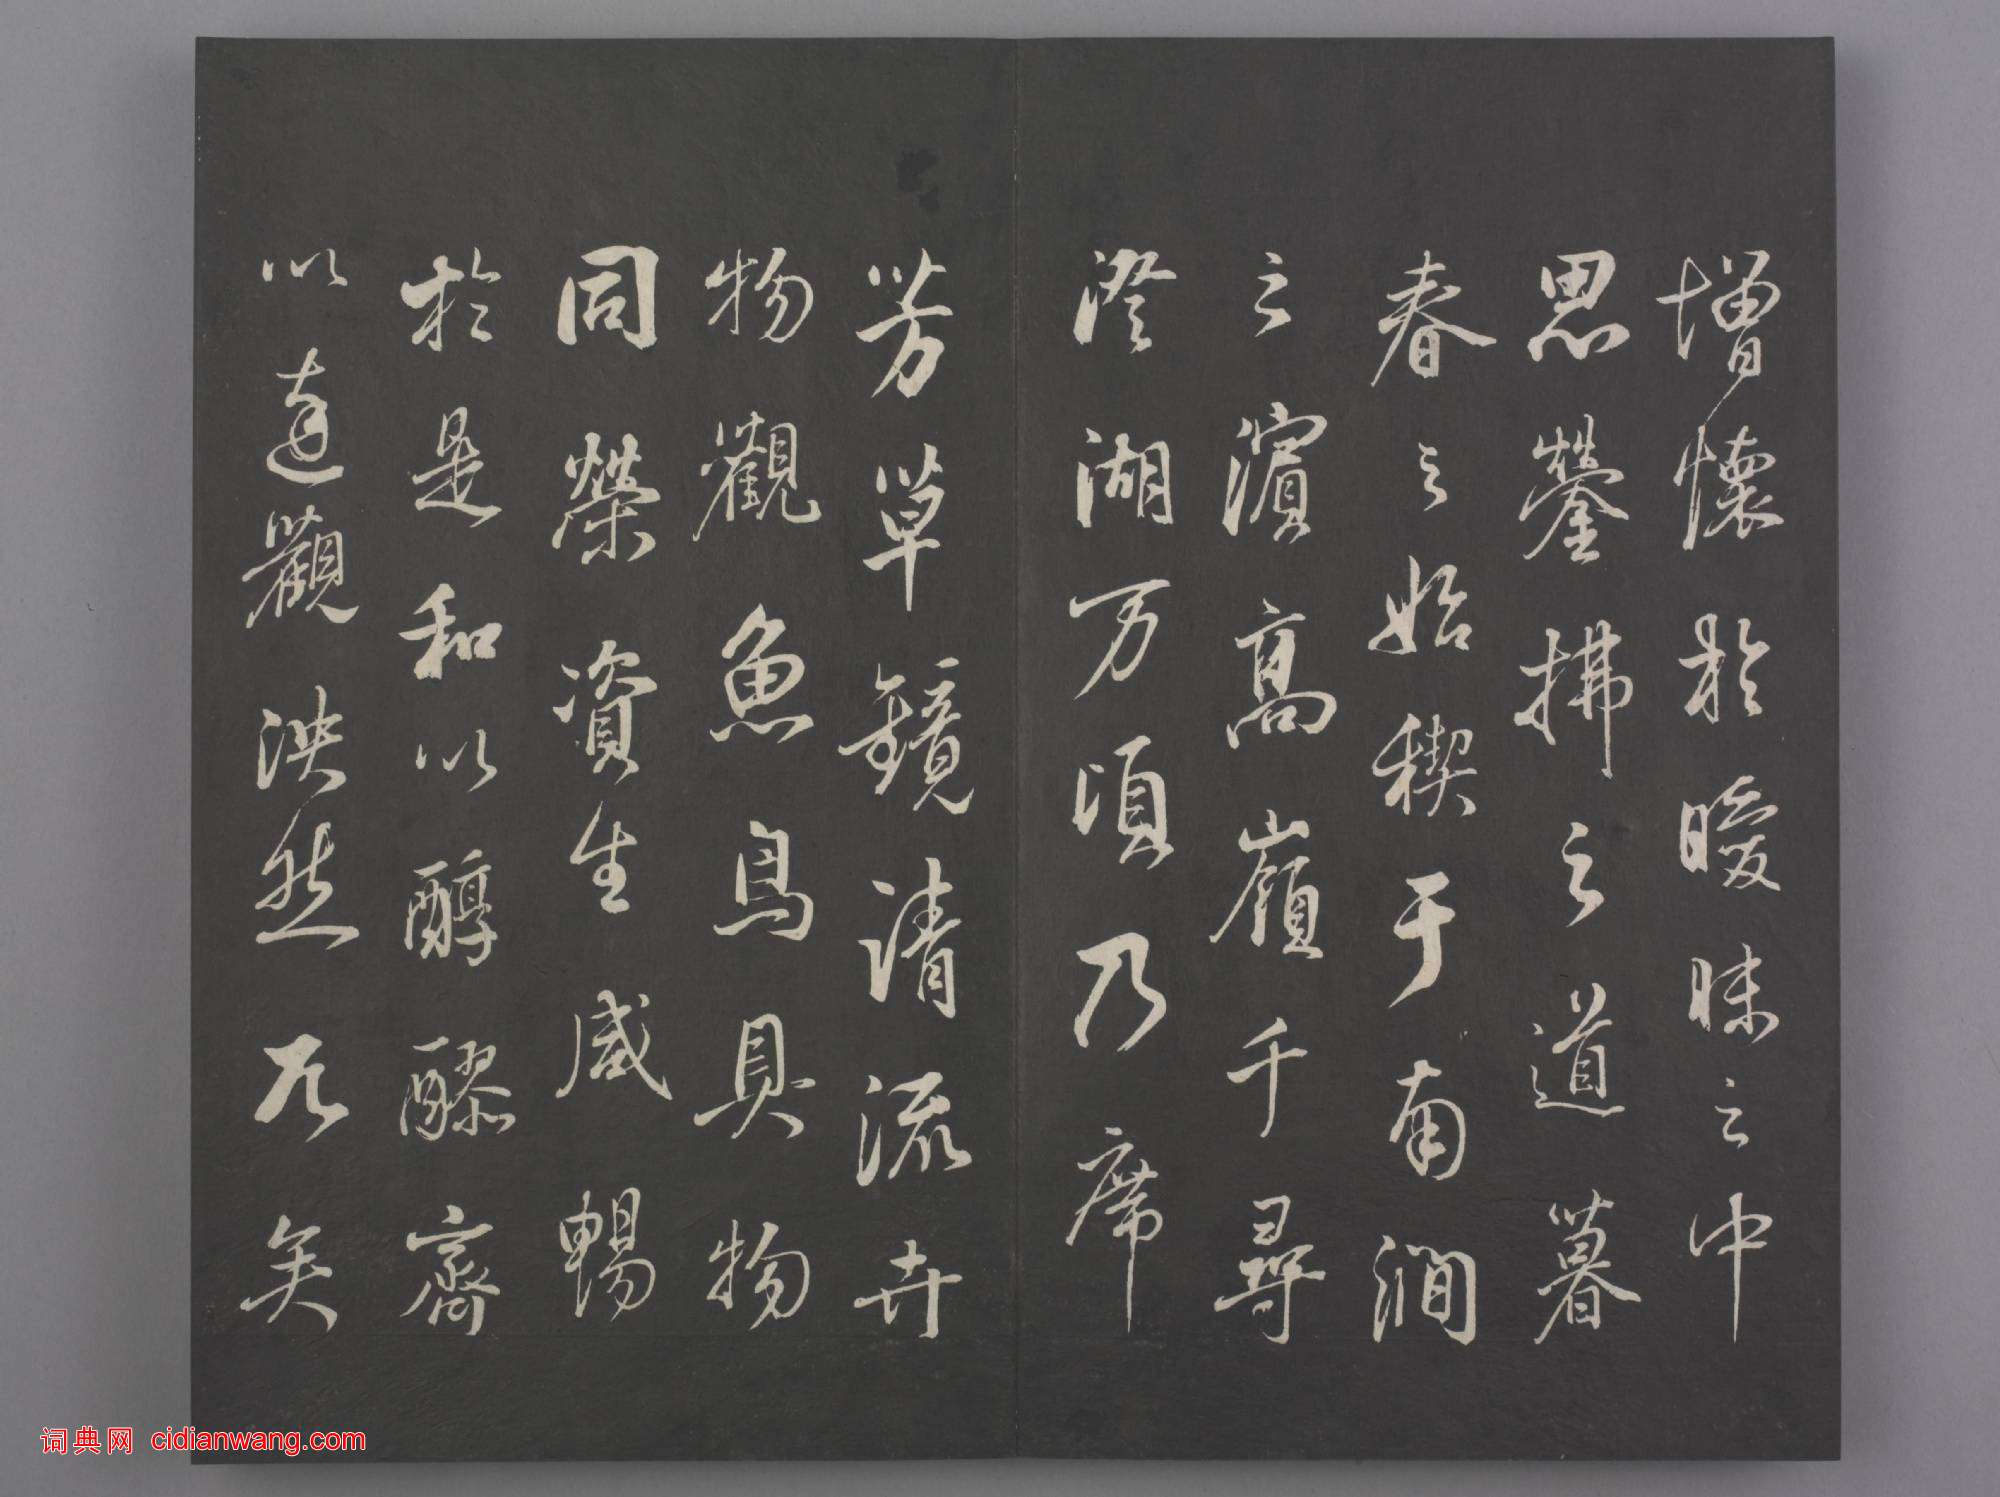 增懷於曖昧之中
思鎣拂之道暮
春之始稧于南澗
之濱高嶺千尋
澄湖万頃乃席
芳草鏡清流卉
物觀魚鳥具物
同榮資生咸暢
於是和以醇醪齊
以達觀泱然兀矣
词典网 cidianwang.com